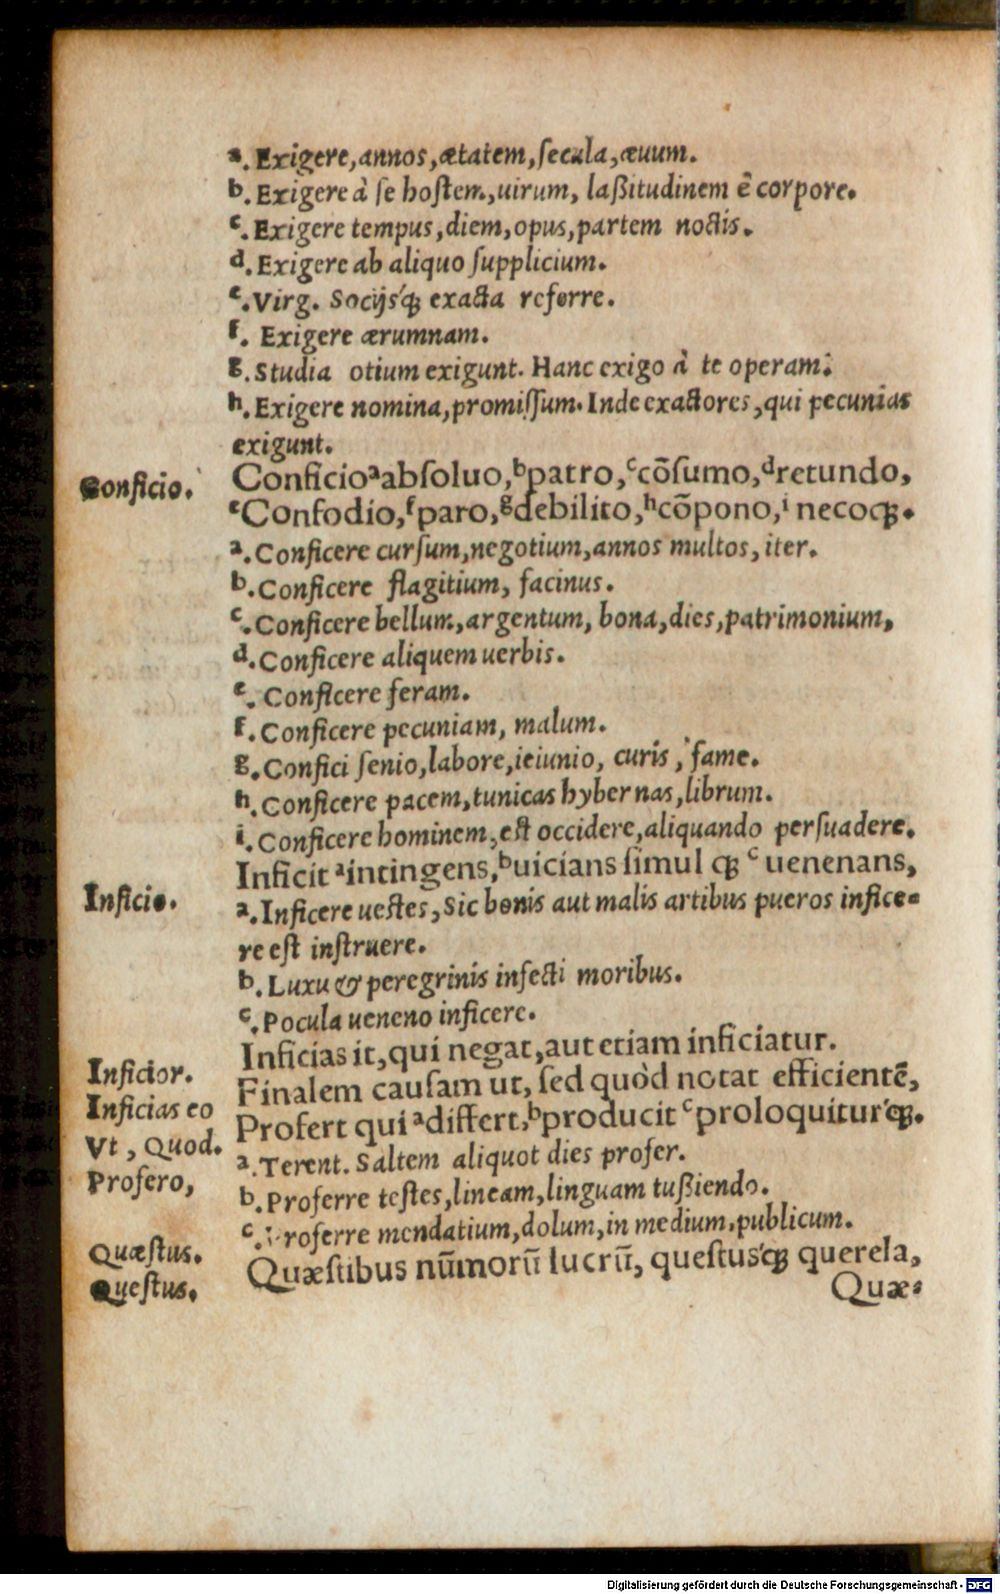 a. Exigere, annos, ætatem, ſecula, æuum.
b. Exigere à ſe hoſtem, uirum, laßitudinem è corpore.
c. Exigere tempus, diem, opus, partem noctis.
d. Exigere ab aliquo ſupplicium.
e. Virg. Socijsq́ꝫ exacta referre.
f. Exigere ærumnam.
g. Studia otium exigunt. Hanc exigo à te operam.
h. Exigere nomina, promiſſum. Inde exactores, qui pecunias
exigunt.
Conficio. Conficio ᵃabſoluo, ᵇpatro, ᶜcōſumo, ᵈretundo,
ᵉConfodio, ᶠparo, ᵍdebilito, ʰcōpono, ⁱ necoqꝫ.
a. Conficere curſum, negotium, annos multos, iter.
b. Conficere flagitium, facinus.
c. Conficere bellum, argentum, bona, dies, patrimonium,
d. Conficere aliquem uerbis.
e. Conficere feram.
f. Conficere pecuniam, malum.
g. Confici ſenio, labore, ieiunio, curis, fame.
h. Conficere pacem, tunicas hybernas, librum.
i. Conficere hominem, eſt occidere, aliquando perſuadere.
Inficit ᵃintingens, ᵇuicians ſimul qꝫ ᶜ uenenans,
Inficio. a. Inficere ueſtes, Sic bonis aut malis artibus pueros infice-
re eſt inſtruere.
b. Luxu & peregrinis infecti moribus.
c. Pocula ueneno inficere.
Inficias it, qui negat, aut etiam inficiatur.
Inficior. Finalem cauſam ut, ſed quòd notat efficientē,
Inficias eo Profert qui ᵃdiffert, ᵇproducit ᶜproloquiturq́ꝫ.
Vt, Quod. a. Terent. Saltem aliquot dies profer.
Profero, b. Proferre teſtes, lineam, linguam tußiendo.
c. Proferre mendatium, dolum, in medium, publicum.
Quæſtus. Quæſtibus nūmorū lucrū, queſtusq́ꝫ querela,
Queſtus. Quæ-
Digitalisierung gefördert durch die Deutsche Forschungsgemeinschaft - DFG